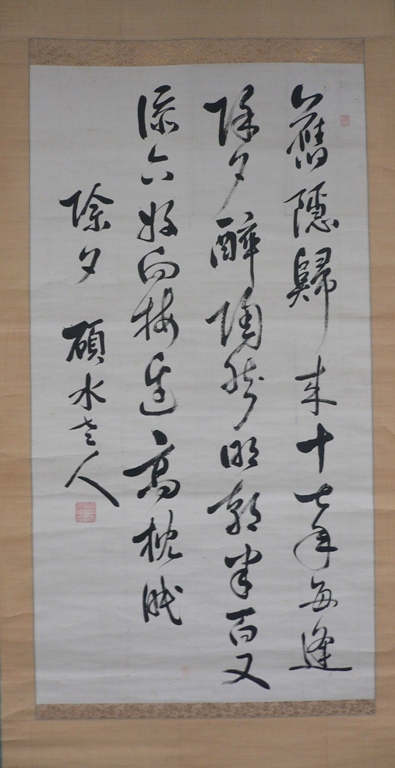 舊隱歸来十七年每逢
除夕醉陶然明朝半百又
添六好向梅邊高枕眠
除夕 碩水老人